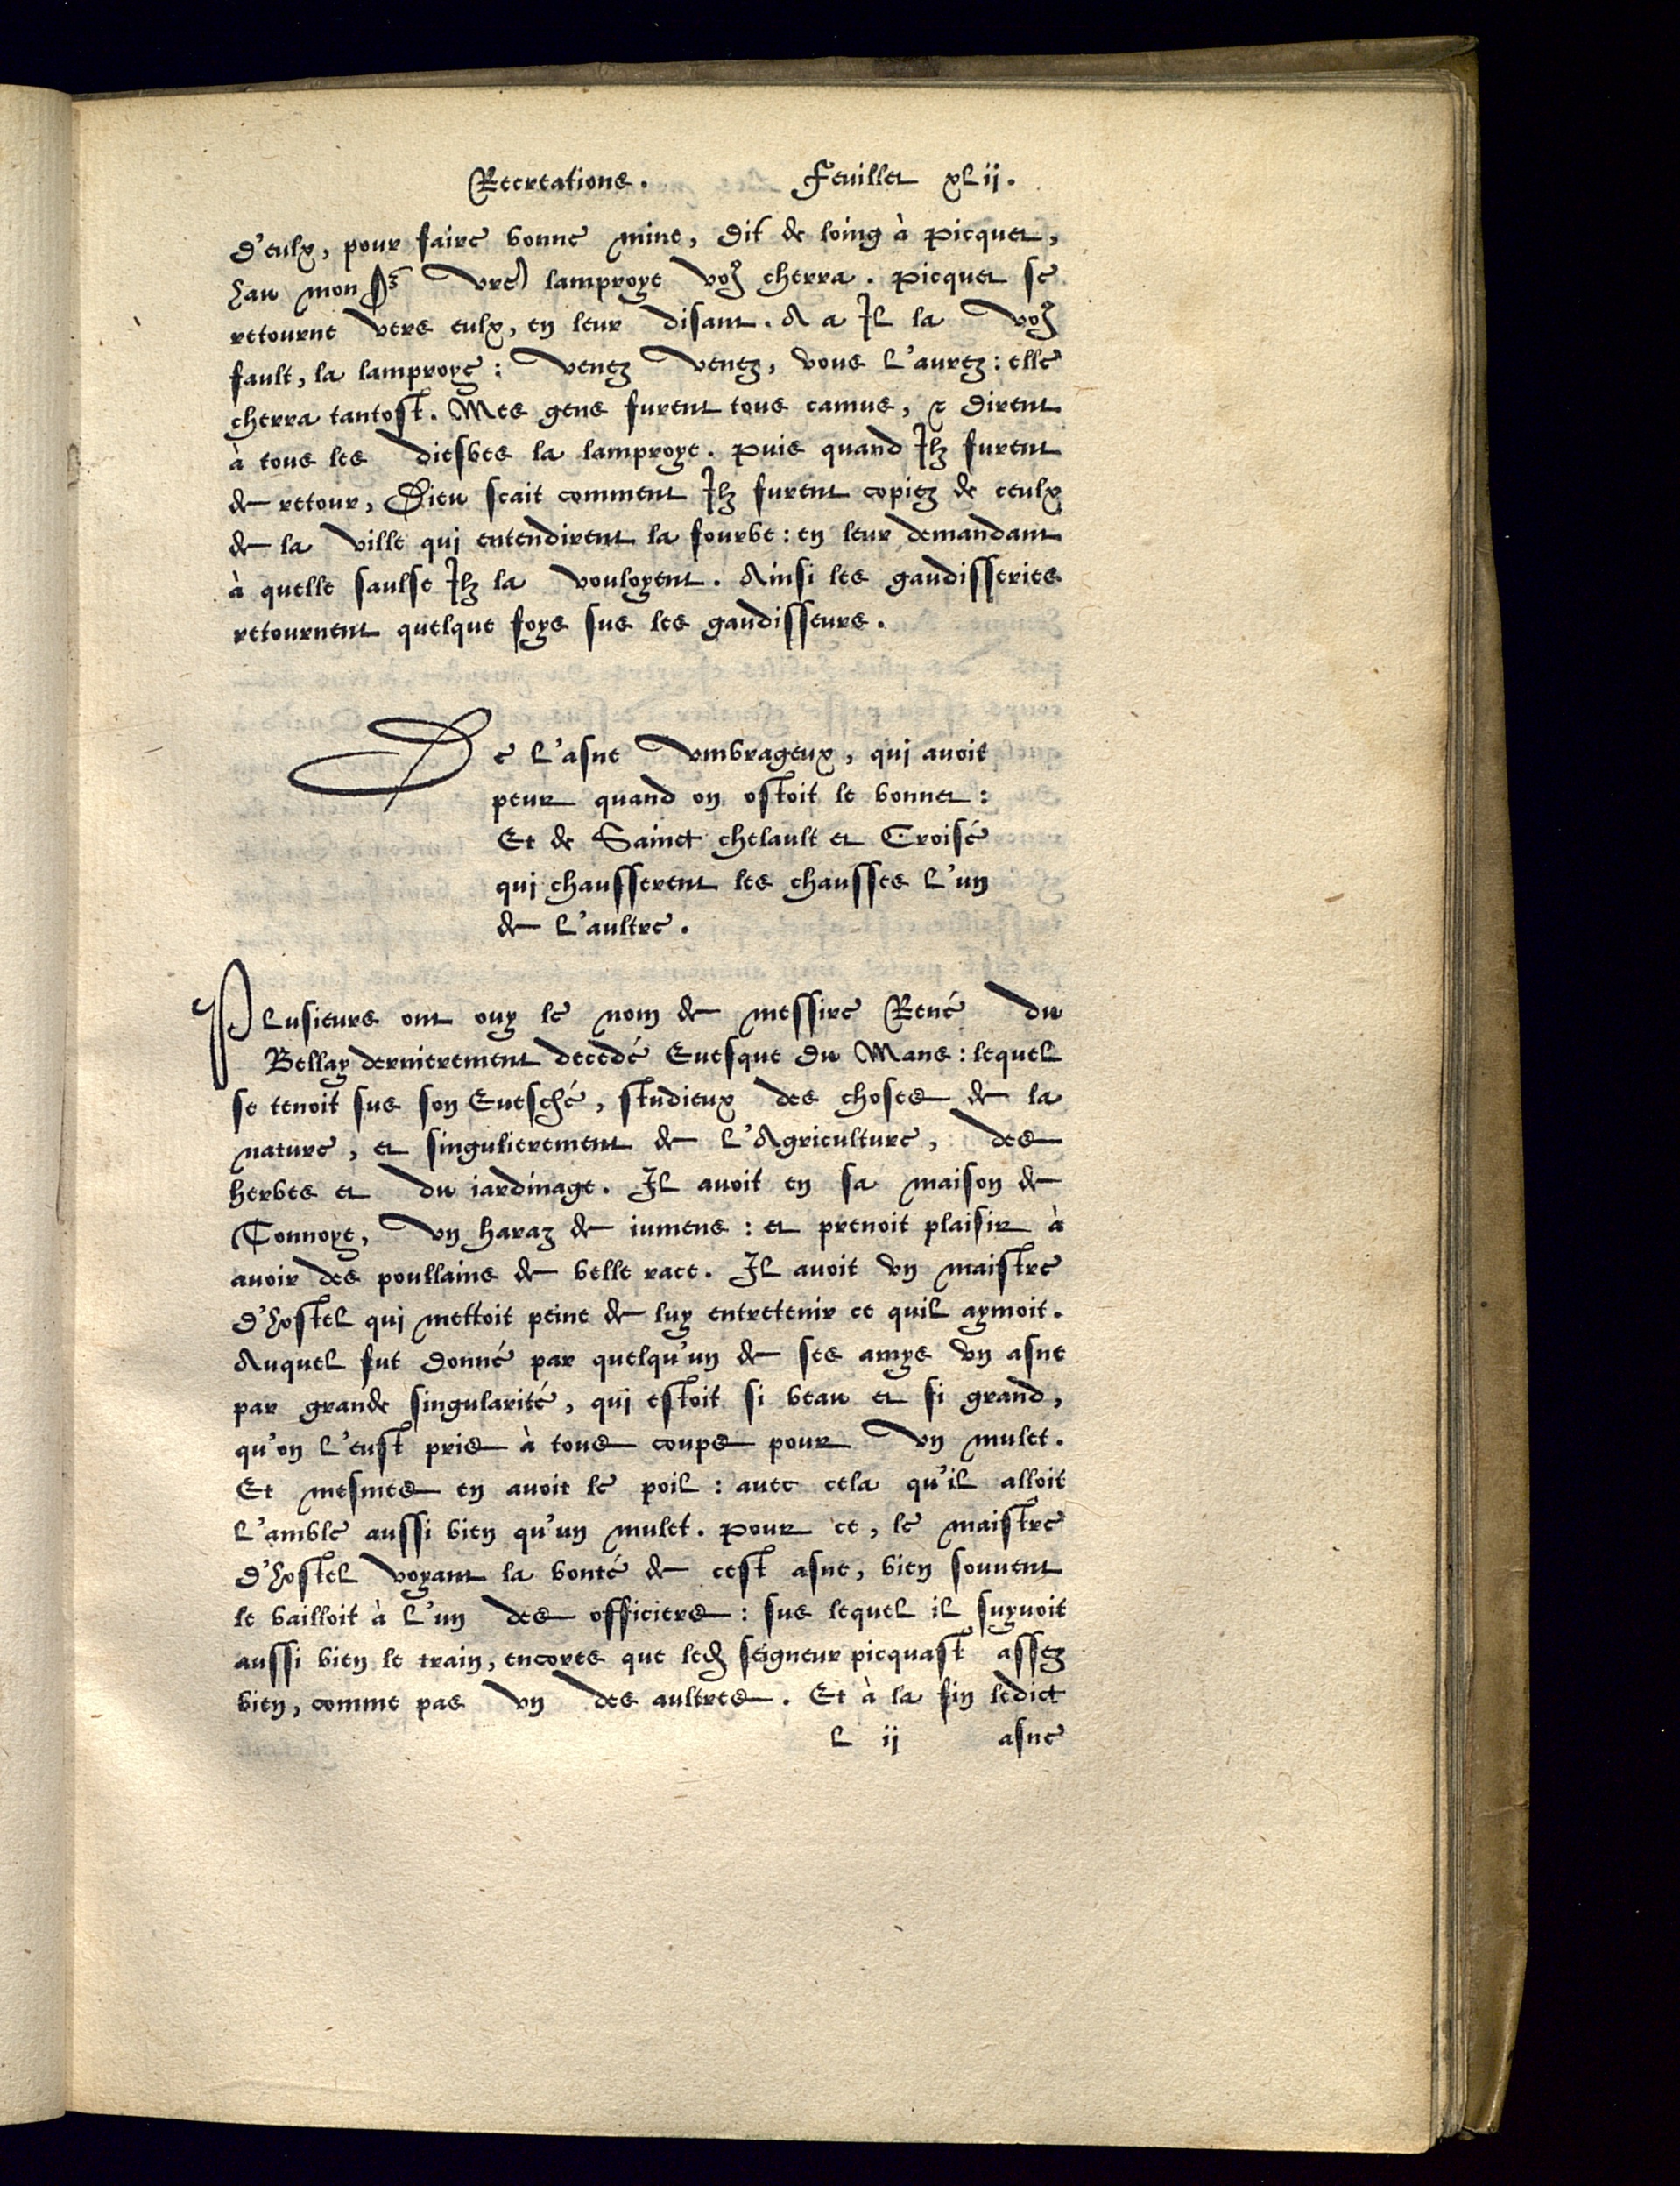 Recreations. Feuillet xLij.
d'eulx, pour faire bonne mine, dit de loing à Picquet,
hau mon Sr vre lamproye vo9 cherra. Picquet se
retourne vers eulx, en leur disant. A a Il la vo9
fault, la lamproye: venez venez, vous l'aurez: elle
cherra tantost. Mes gens furent tous camus, & dirent
à tous les diesbes la lamproye. Puis quand Ilz furent
de retour, Dieu scait comment Ilz furent copiez de ceulx
de la ville qui entendirent la fourbe: en leur demandant
à quelle saulse Ilz la vouloyent. Ainsi les gaudisseries
retournent quelque foys sus les gaudisseurs.
De l'asne vmbrageux, qui auoit
peur quand on ostoit le bonnet:
Et de Sainct chelault et Croisé
qui chausserent les chausses l'un
de l'aultre.
Plusieurs ont ouy le nom de messire René du
Bellay dernierement decedé Euesque du Mans: lequel
se tenoit sus son Euesché, studieux des choses de la
nature, et singulierement de l'Agriculture, des
herbes et du iardinage. Il auoit en sa maison de
Tonnoye, vn haraz de iumens: et prenoit plaisir à
auoir des poullains de belle race. Il auoit vn maistre
d'hostel qui mettoit peine de luy entretenir ce quil aymoit.
Auquel fut donné par quelqu'un de ses amys vn asne
par grande singularité, qui estoit si beau et si grand,
qu'on l'eust pris à tous coups pour vn mulet.
Et mesmes en auoit le poil: auec cela qu'il alloit
l'amble aussi bien qu'un mulet. Pour ce, le maistre
d'hostel voyant la bonté de cest asne, bien souuent
le bailloit à l'un des officiers: sus lequel il suyuoit
aussi bien le train, encores que led seigneur picquast assez
bien, comme pas vn des aultres. Et à la fin ledict
L ij asne